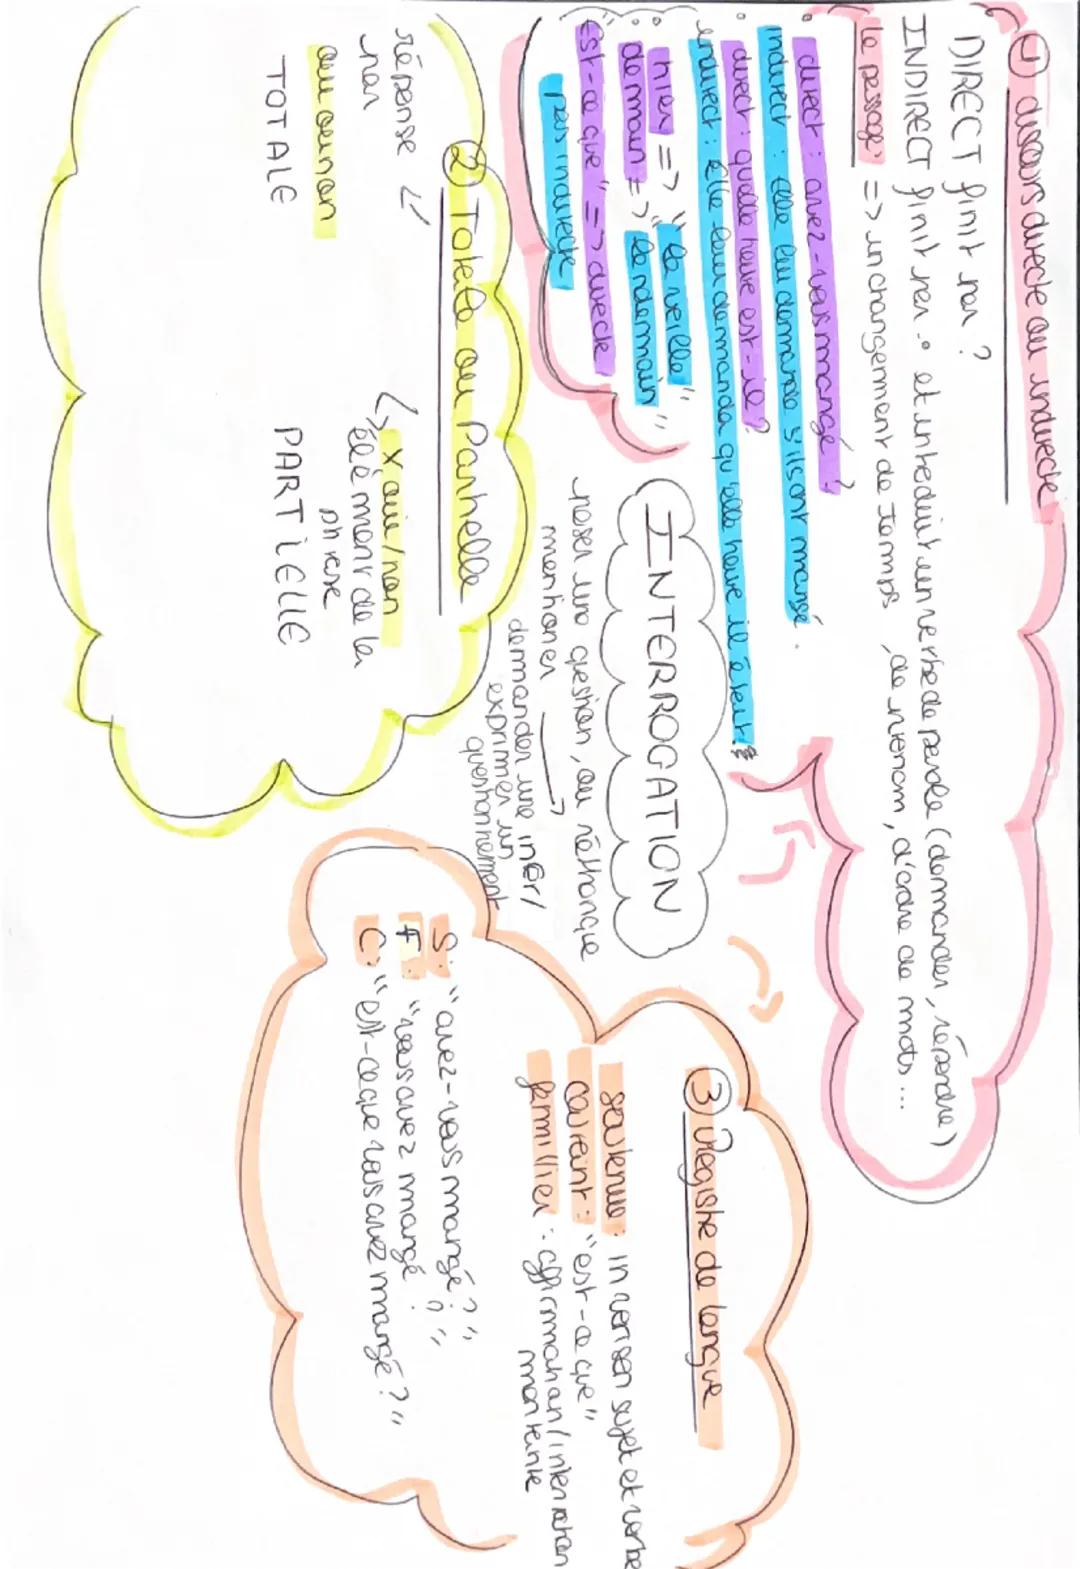 ① discours directe ou indirecte
DIRECT finit par ?
INDIRECT finit par . et introduit un verbe de parole (demander, répondre)
le passage => un changement de temps, de pronom, d'ordre de mots ...
• direct : avez-vous mangé ?
indirect : elle leur demande s'ils ont mangé.
• direct : quelle heure est-il ?
indirect : Elle leur demanda qu'elle heure il était.
• hier => "la veille"
demain => "le lendemain"
"Est-ce que" => directe
pas indirecte
INTERROGATION
poser une question, ou réthorique
mentionner → demander une infor/
exprimer un
questionnement
② Totale ou Partielle
réponse
par
oui ou non
TOTALE
x oui/non
élément de la
phrase
PARTIELLE
③ Registre de langue
soutenue : inversion sujet et verbe
courant : "est-ce que"
famillier : affirmation/intonation
montante
S: "avez-vous mangé ?"
F: "vous avez mangé ?"
C: "est-ce que vous avez mangé ?"